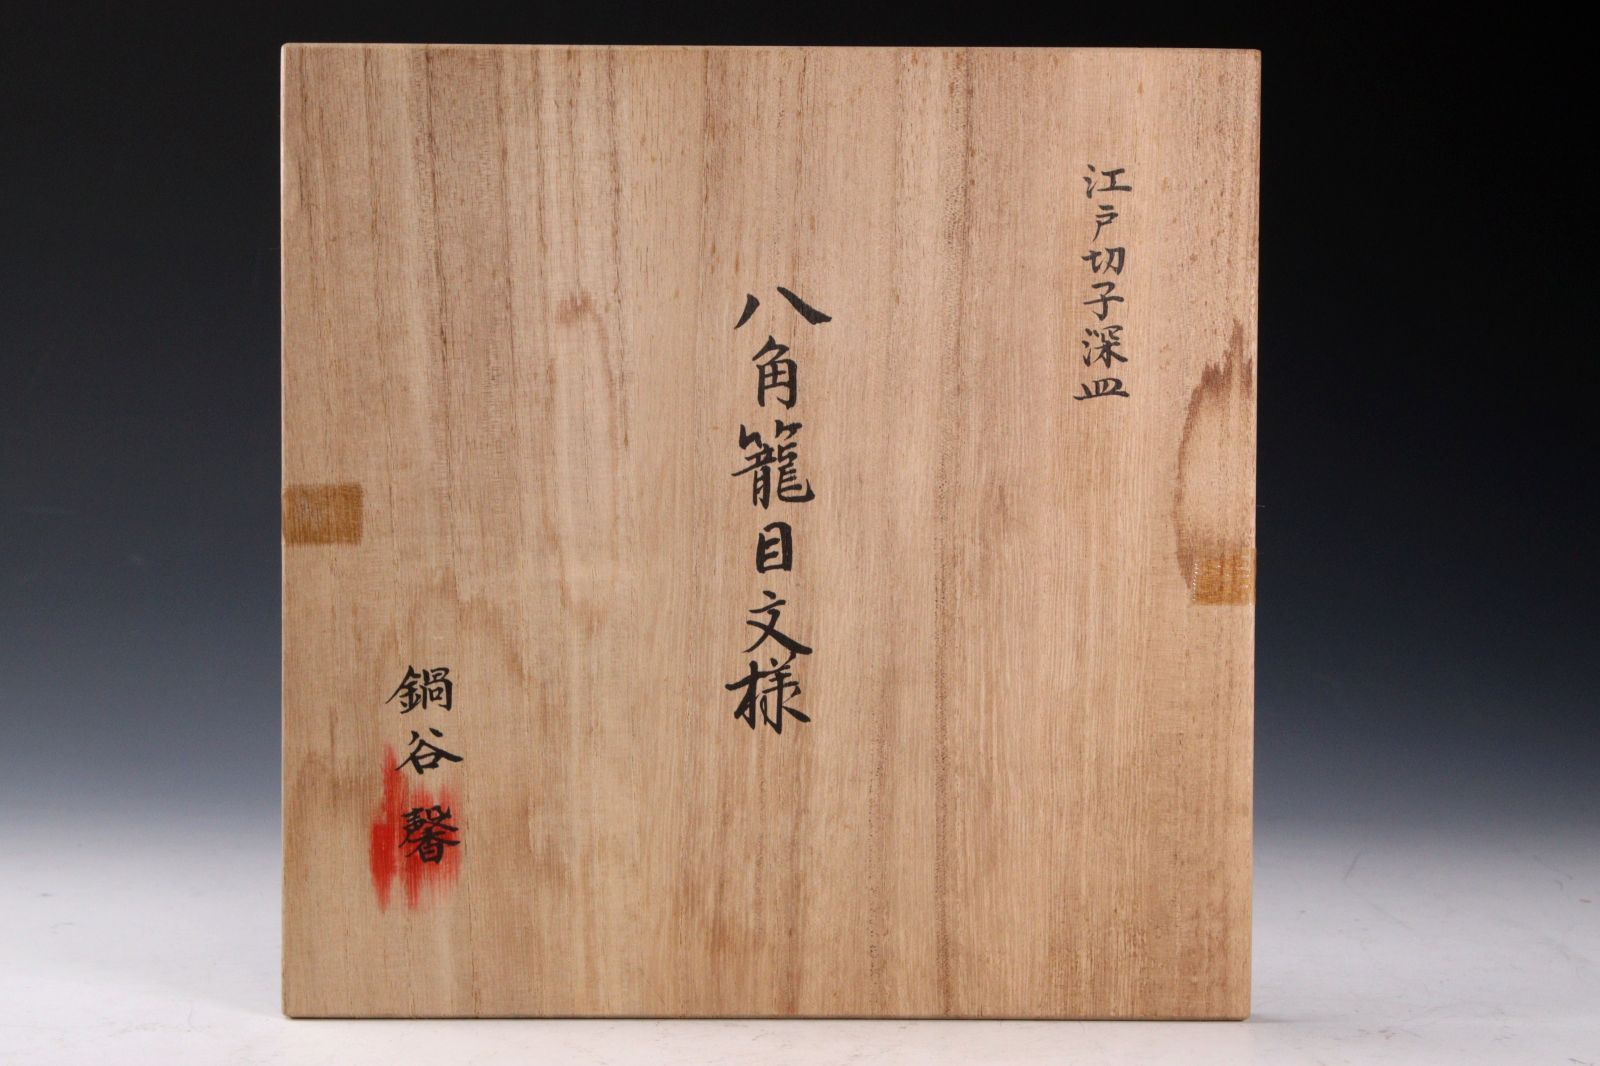 江戸切子深皿
八角籠目文様
鍋谷馨